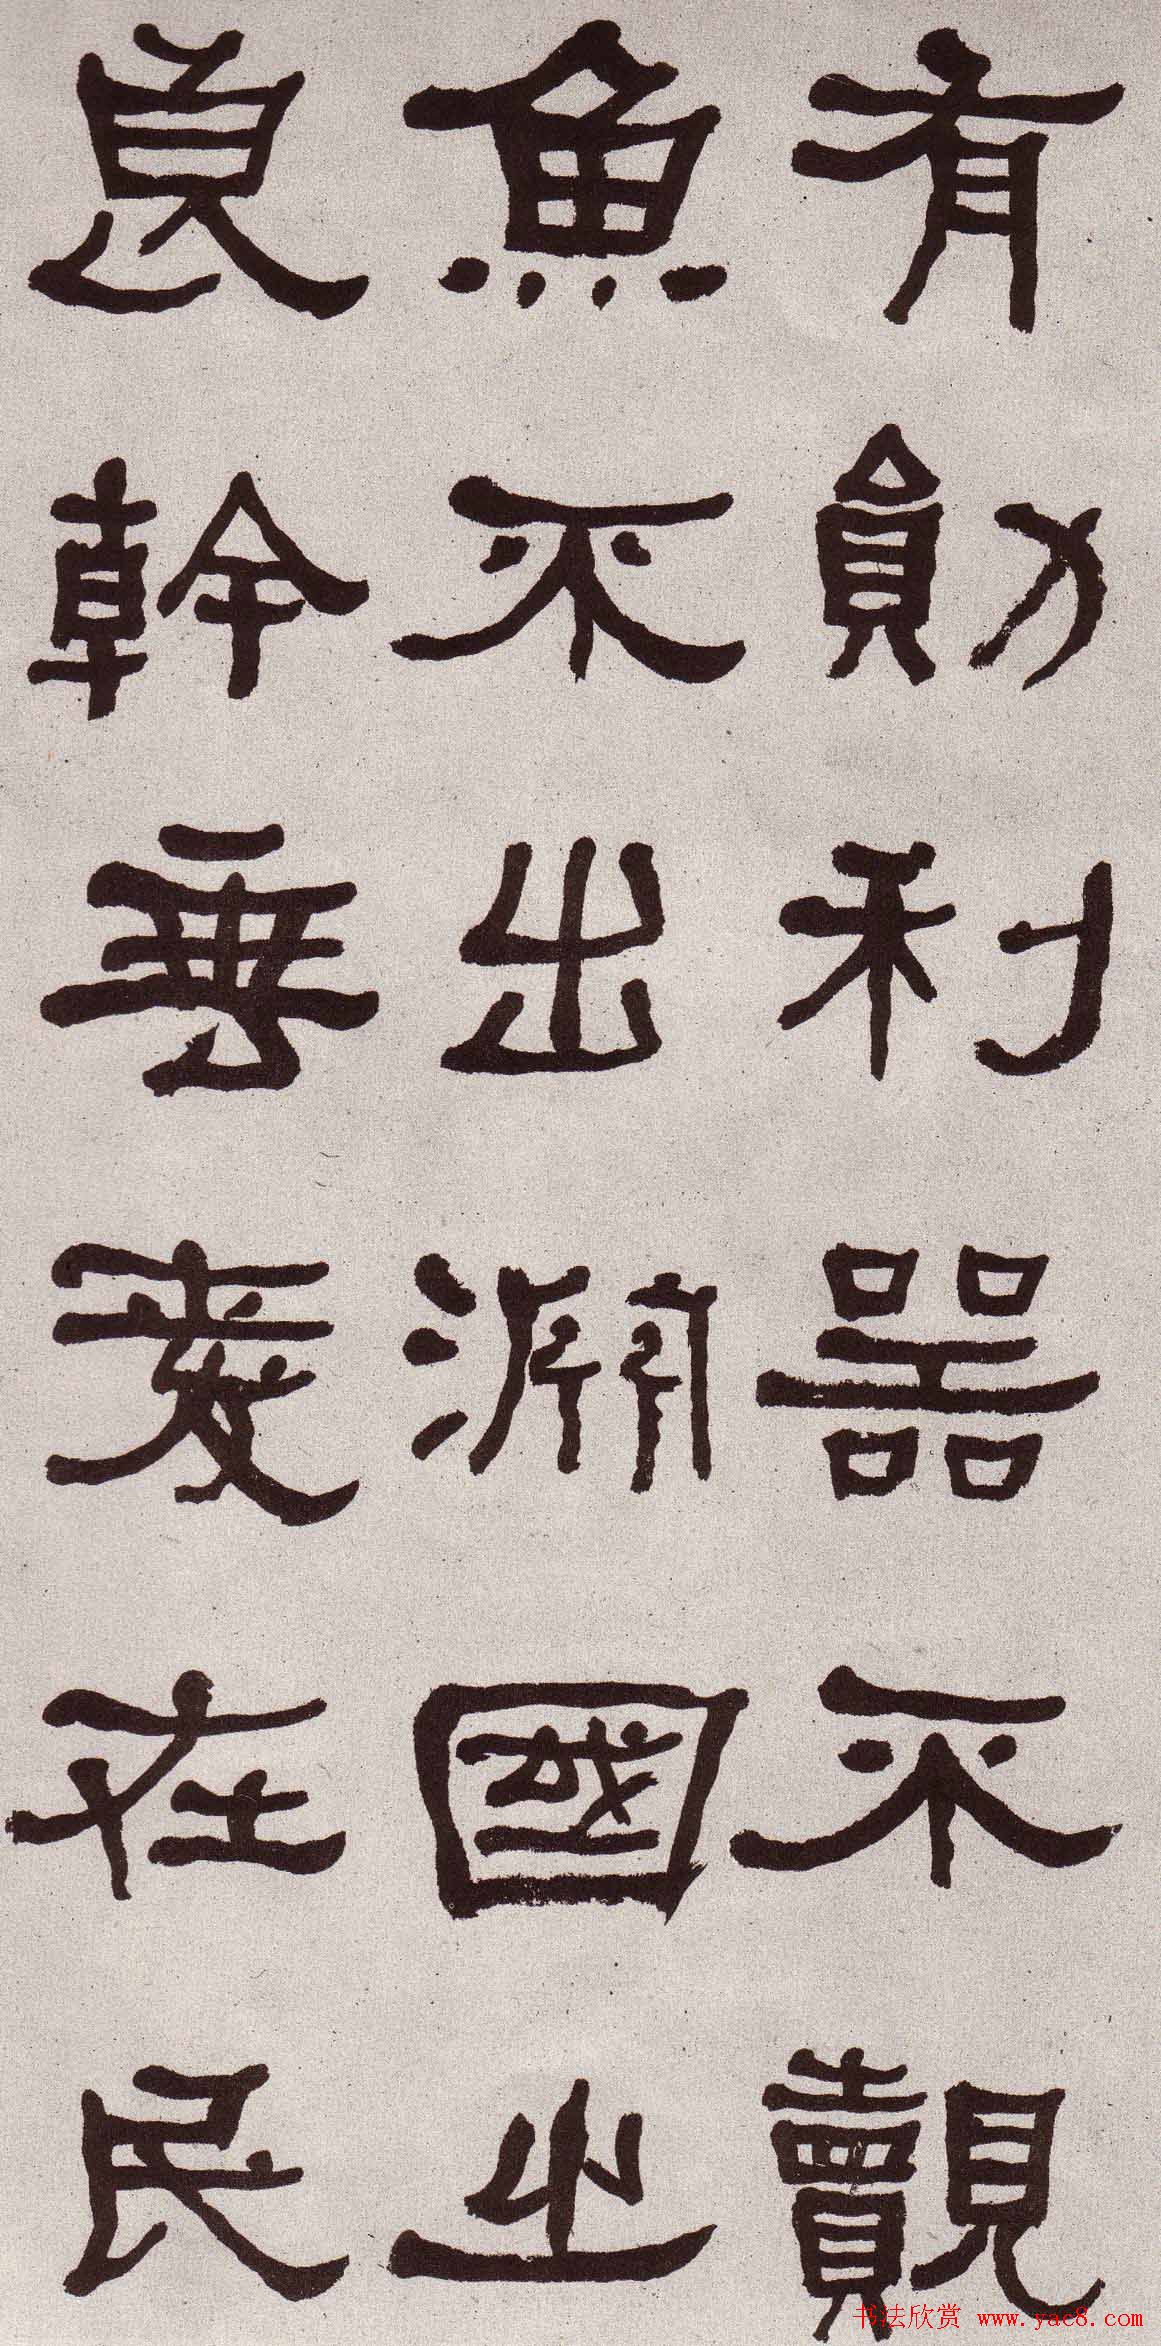 有勛利器不覿
魚不出淵國之
良幹垂愛在民
书法欣赏 www.yac8.com